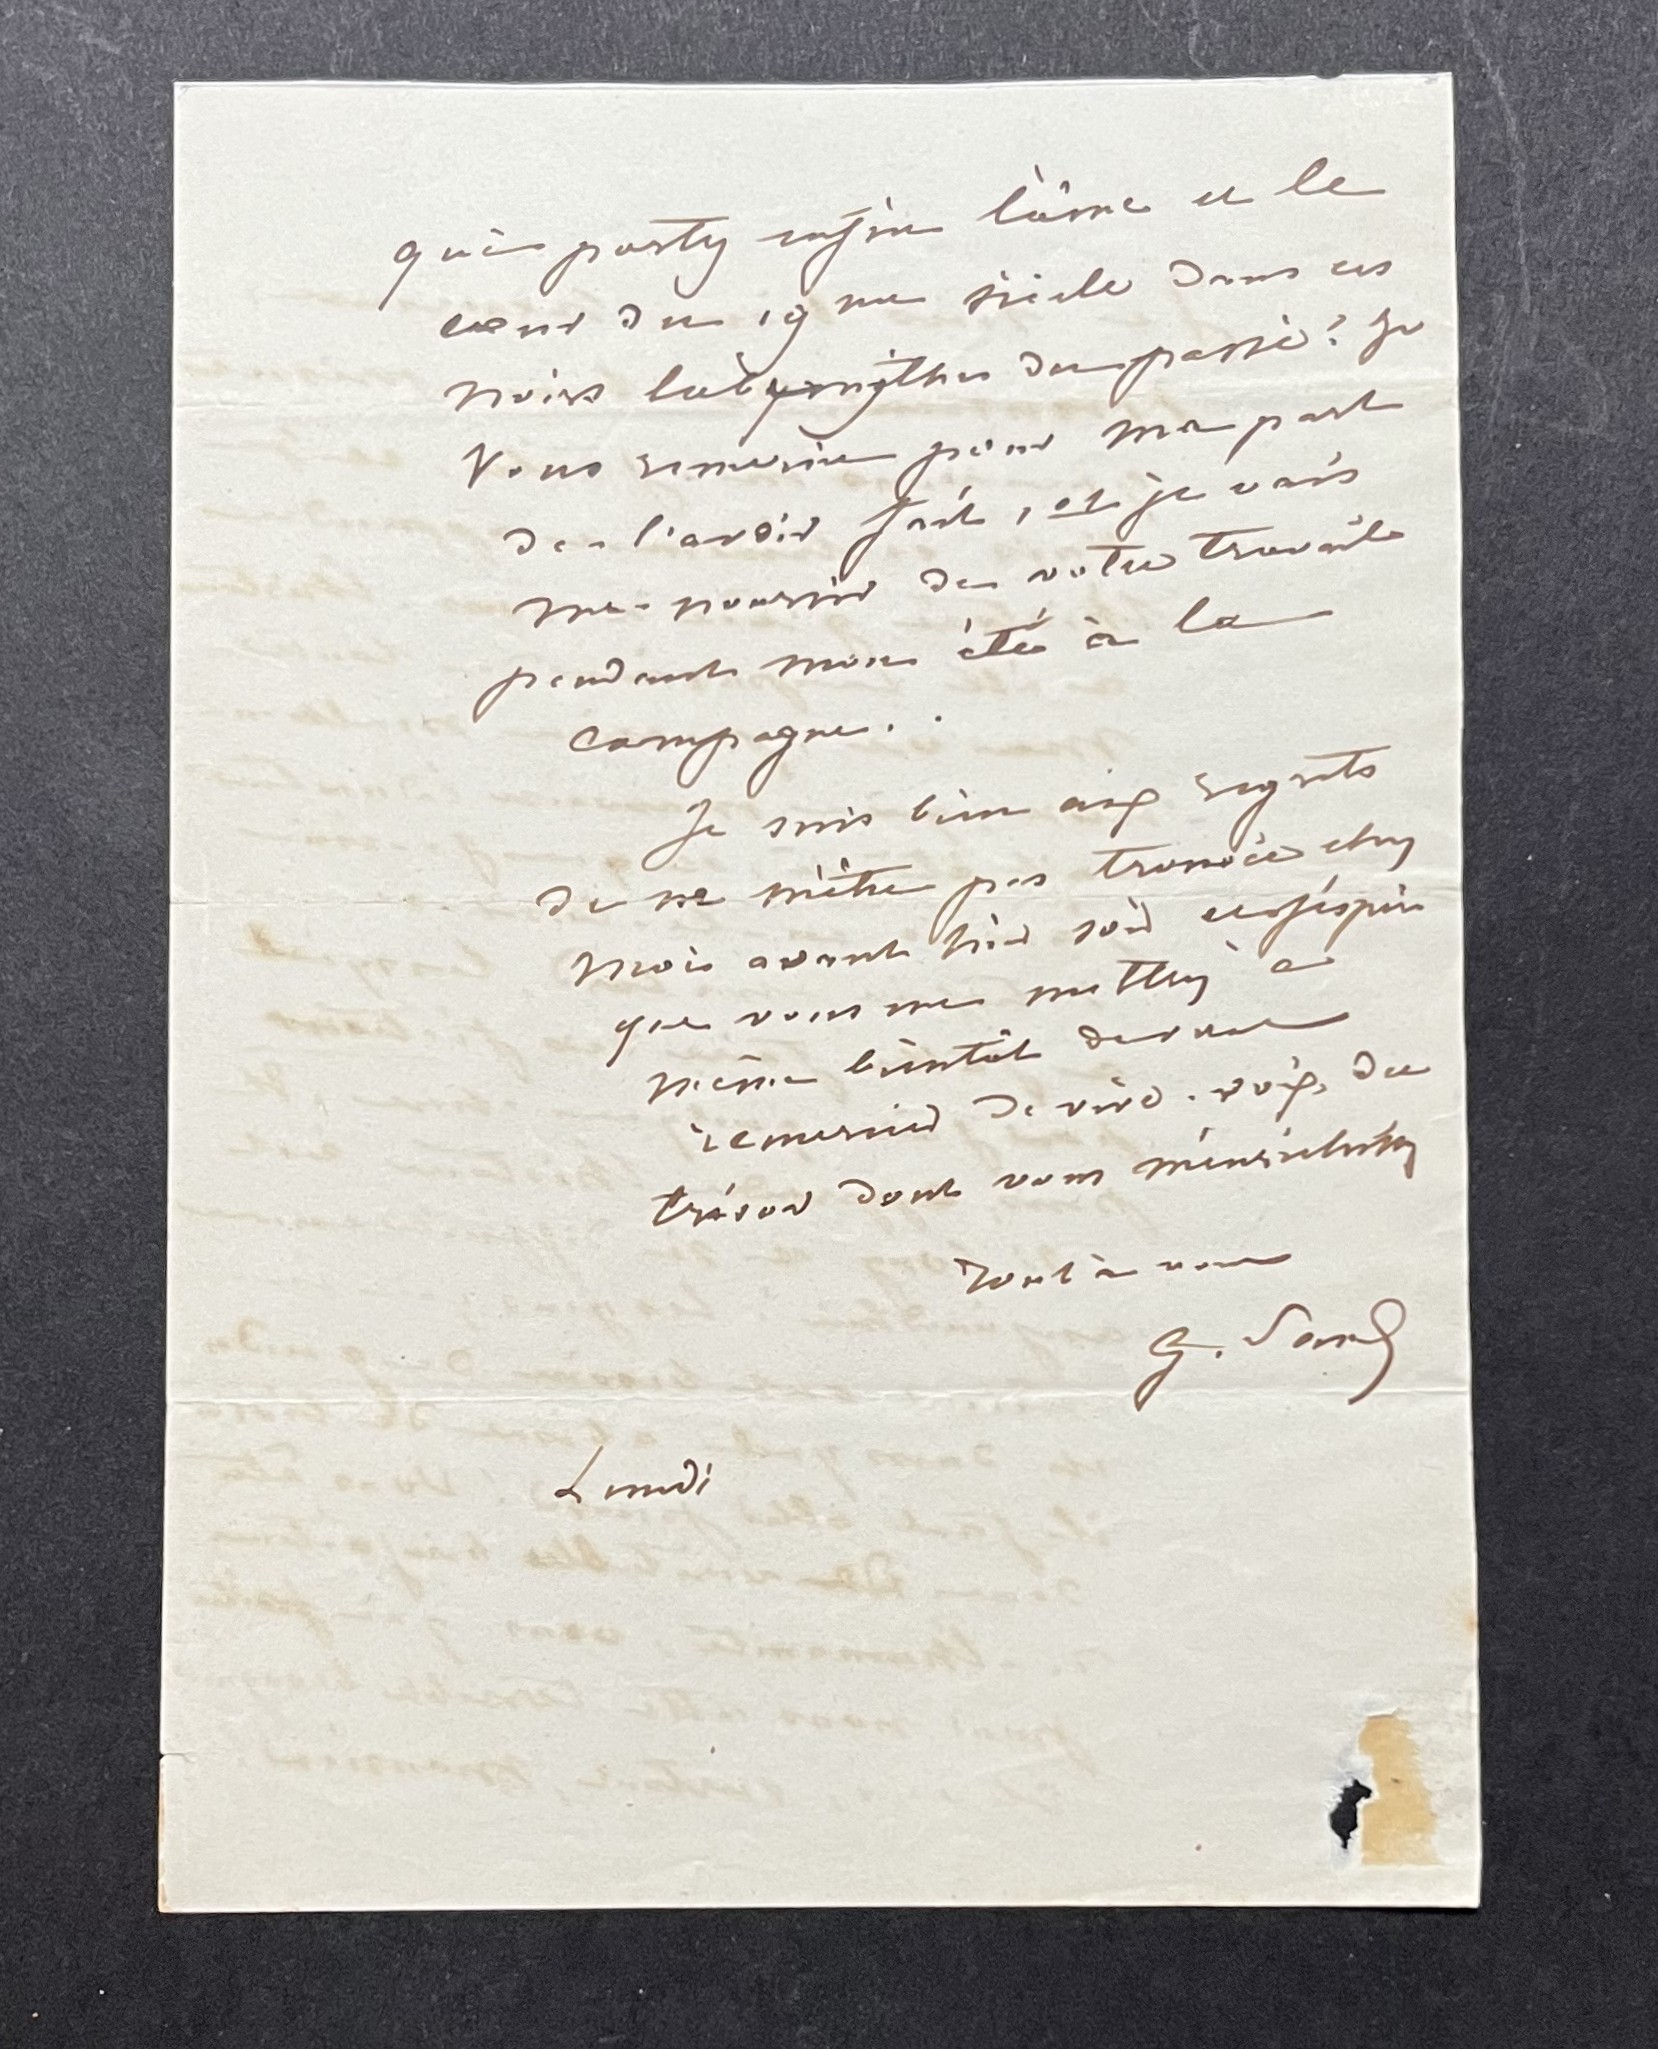 qui portez enfin l'âme et le
cœur du 19me siècle dans ces
noirs labyrinthes du passé? Je
vous remercie pour ma part
de l'avoir fait, et je vais
me nourrir de votre travail
pendant mon été à la
campagne.
Je suis bien aux regrets
de ne m'être pas trouvée chez
moi avant hier soir et j'espère
que vous me mettrez à
même bientôt de vous
remercier de vive voix du
trésor dont vous m'enrichissez
Tout à vous
G. Sand
Lundi